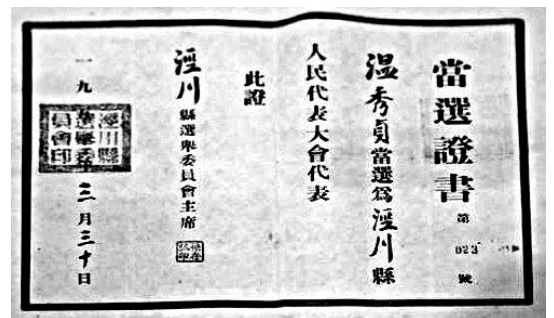 當選證書
第023號
温秀貞當選爲涇川縣
人民代表大會代表
此證
涇川縣選舉委員會主席
一九
三月三十日
涇川縣選舉委員會印